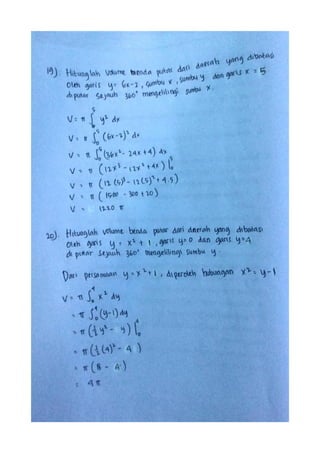 19). Hitunglah volume benda putar dari daerah yang dibatasi
oleh garis y = 6x-2, sumbu x, sumbu y dan garis x = 5
diputar sejauh 360° mengelilingi sumbu x.
V = π ∫₀⁵ y² dx
V = π ∫₀⁵ (6x-2)² dx
V = π ∫₀⁵ (36x² - 24x + 4) dx
V = π (12x³ - 12x² + 4x) |₀⁵
V = π (12 (5)³ - 12 (5)² + 4.5)
V = π (1500 - 300 + 20)
V = 1220 π
20). Hitunglah volume benda putar dari daerah yang dibatasi
oleh garis y = x² + 1, garis y=0 dan garis y=4
diputar sejauh 360° mengelilingi sumbu y.
Dari persamaan y = x² + 1, diperoleh hubungan x² = y - 1
V = π ∫₀⁴ x² dy
= π ∫₀⁴ (y-1) dy
= π (½ y² - y) |₀⁴
= π (½ (4)² - 4)
= π (8 - 4)
= 4π